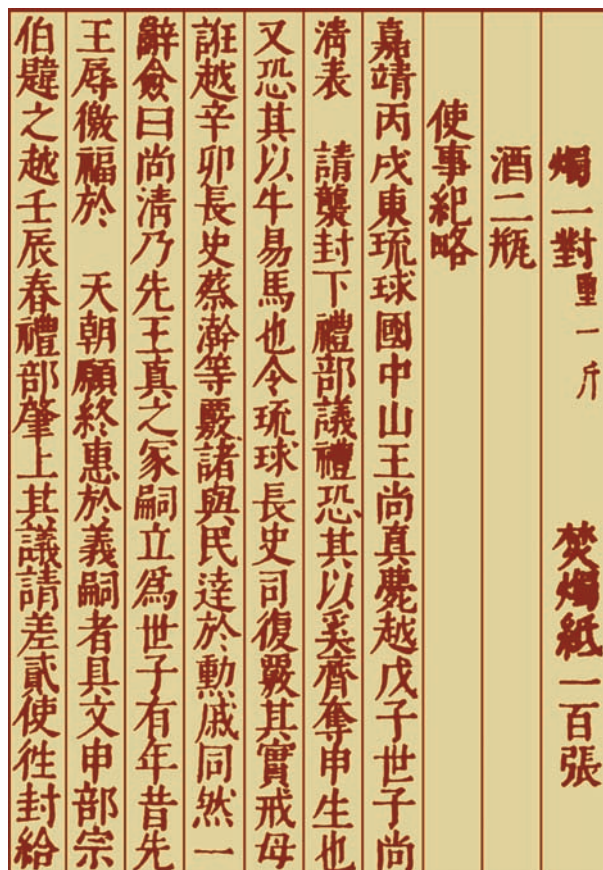 燭一對重一斤 焚燭紙一百張
酒二瓶
使事紀略
嘉靖丙戌東琉球國中山王尚真薨越戊子世子尚
清表 請襲封下禮部議禮恐其以奚齊奪申生也
又恐其以牛易馬也令琉球長史司復覈其實戒毋
誑越辛卯長史蔡瀚等覈諸輿民達於勳戚同然一
辭僉曰尚清乃先王真之冢嗣立為世子有年昔先
王辱徼福於 天朝願終惠於義嗣者具文申部宗
伯韙之越壬辰春禮部肇上其議請差貳使往封給